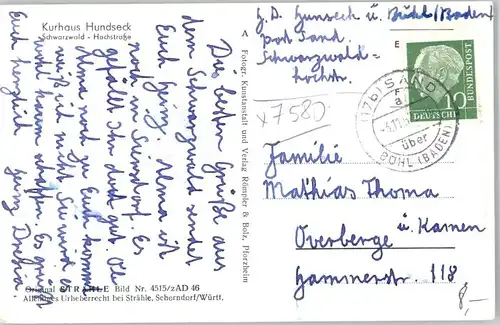 Kurhaus Hundseck
Schwarzwald - Hochstraße
Die besten Grüße aus
dem Schwarzwald sendet
Euch Alma ist
noch in Es
Ihr gut. Ob
Alma noch zu Euch kommt
weiß ich nicht. Sie wird es
wohl kaum schaffen. Es grüßt
Euch herzlich
Original STRÄHLE Bild Nr. 4515/zAD 46
Allein. Urheberrecht bei Strähle, Schorndorf/Württ.
A Fotogr. Kunstanstalt und Verlag Römpler & Bolz, Pforzheim
E
F
a
x7580
z. Z. Hundseck ü. Bühl (Baden)
post Sand
Schwarzwald-
hochstr.
(17b) SAND
über
BÜHL (BADEN)
DEUTSCHE
BUNDESPOST
10
Familie
Mathias Thoma
Overberge ü. Kamen
Hammerstr. 118
8,-